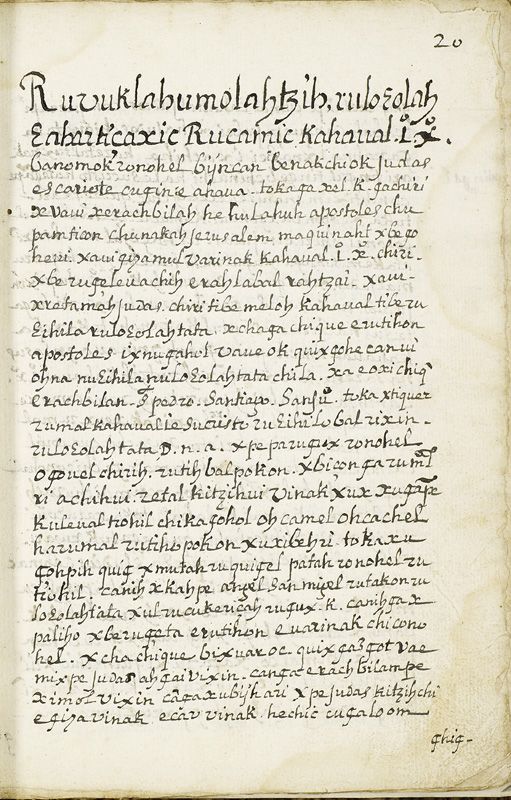 20
Ruvuklahumolahtzih. ruloƐolah
Ɛaharticaxic Rucamic Kahaual. I. X.
banomok ronohel biyn can benakchiok Judas
escariote cuginie ahaua. tokaga xel. k. gachiri
x vaui xerachbilah he hulahuh apostoles chu
pam ticon chunakah Jerusalem maquinaht xbego
heui. xaui qiyamul varinak Kahaual. I. X. chiri.
xberugeleuachih erahlabal rahtzai. xaui
xretamah Judas. chiri tibe meloh Kahaual tiberu
Ɛihila ruloƐolah tata. xchaga chique erutihon
apostoles ixnugahol vaue ok quixgohe can vi
ohna nuƐihila nuloƐolah tata chila. xa e oxi chiq
erachbilan. S. pedro. Santiago. San Ju. toka xtiquer
rumal Kahaual Jesucristo ruƐihulobal rixin.
ruloƐolah tata D. n. a. xpe parugux ronohel
ogouel chirih. rutih balpokon. xbicon ga rumal
ri achihui retal kitzihui vinak xux xugape
Kuleual tiohil chikagohol oh camel ohcachel
harumal rutihopokon xuxibehri. tokaxu
gohpih quig xmutah ruquigel patah ronohel ru
tiohil. canih xkahpe angel San miguel rutakon ru
loƐolah tata xul rucukericah rugux. k. canih ga x
paliho xberugeta erutihon euarinak chicono
hel. xcha chique bixuaroc. quix caƐgot vae
mixpe Judas ahgaivixin. canga erachbilampe
ximol vixin caga xubijh ari xpe Judas kitzih chi
e qiya vinak ecav vinak. hechic cugaloom
ghig-